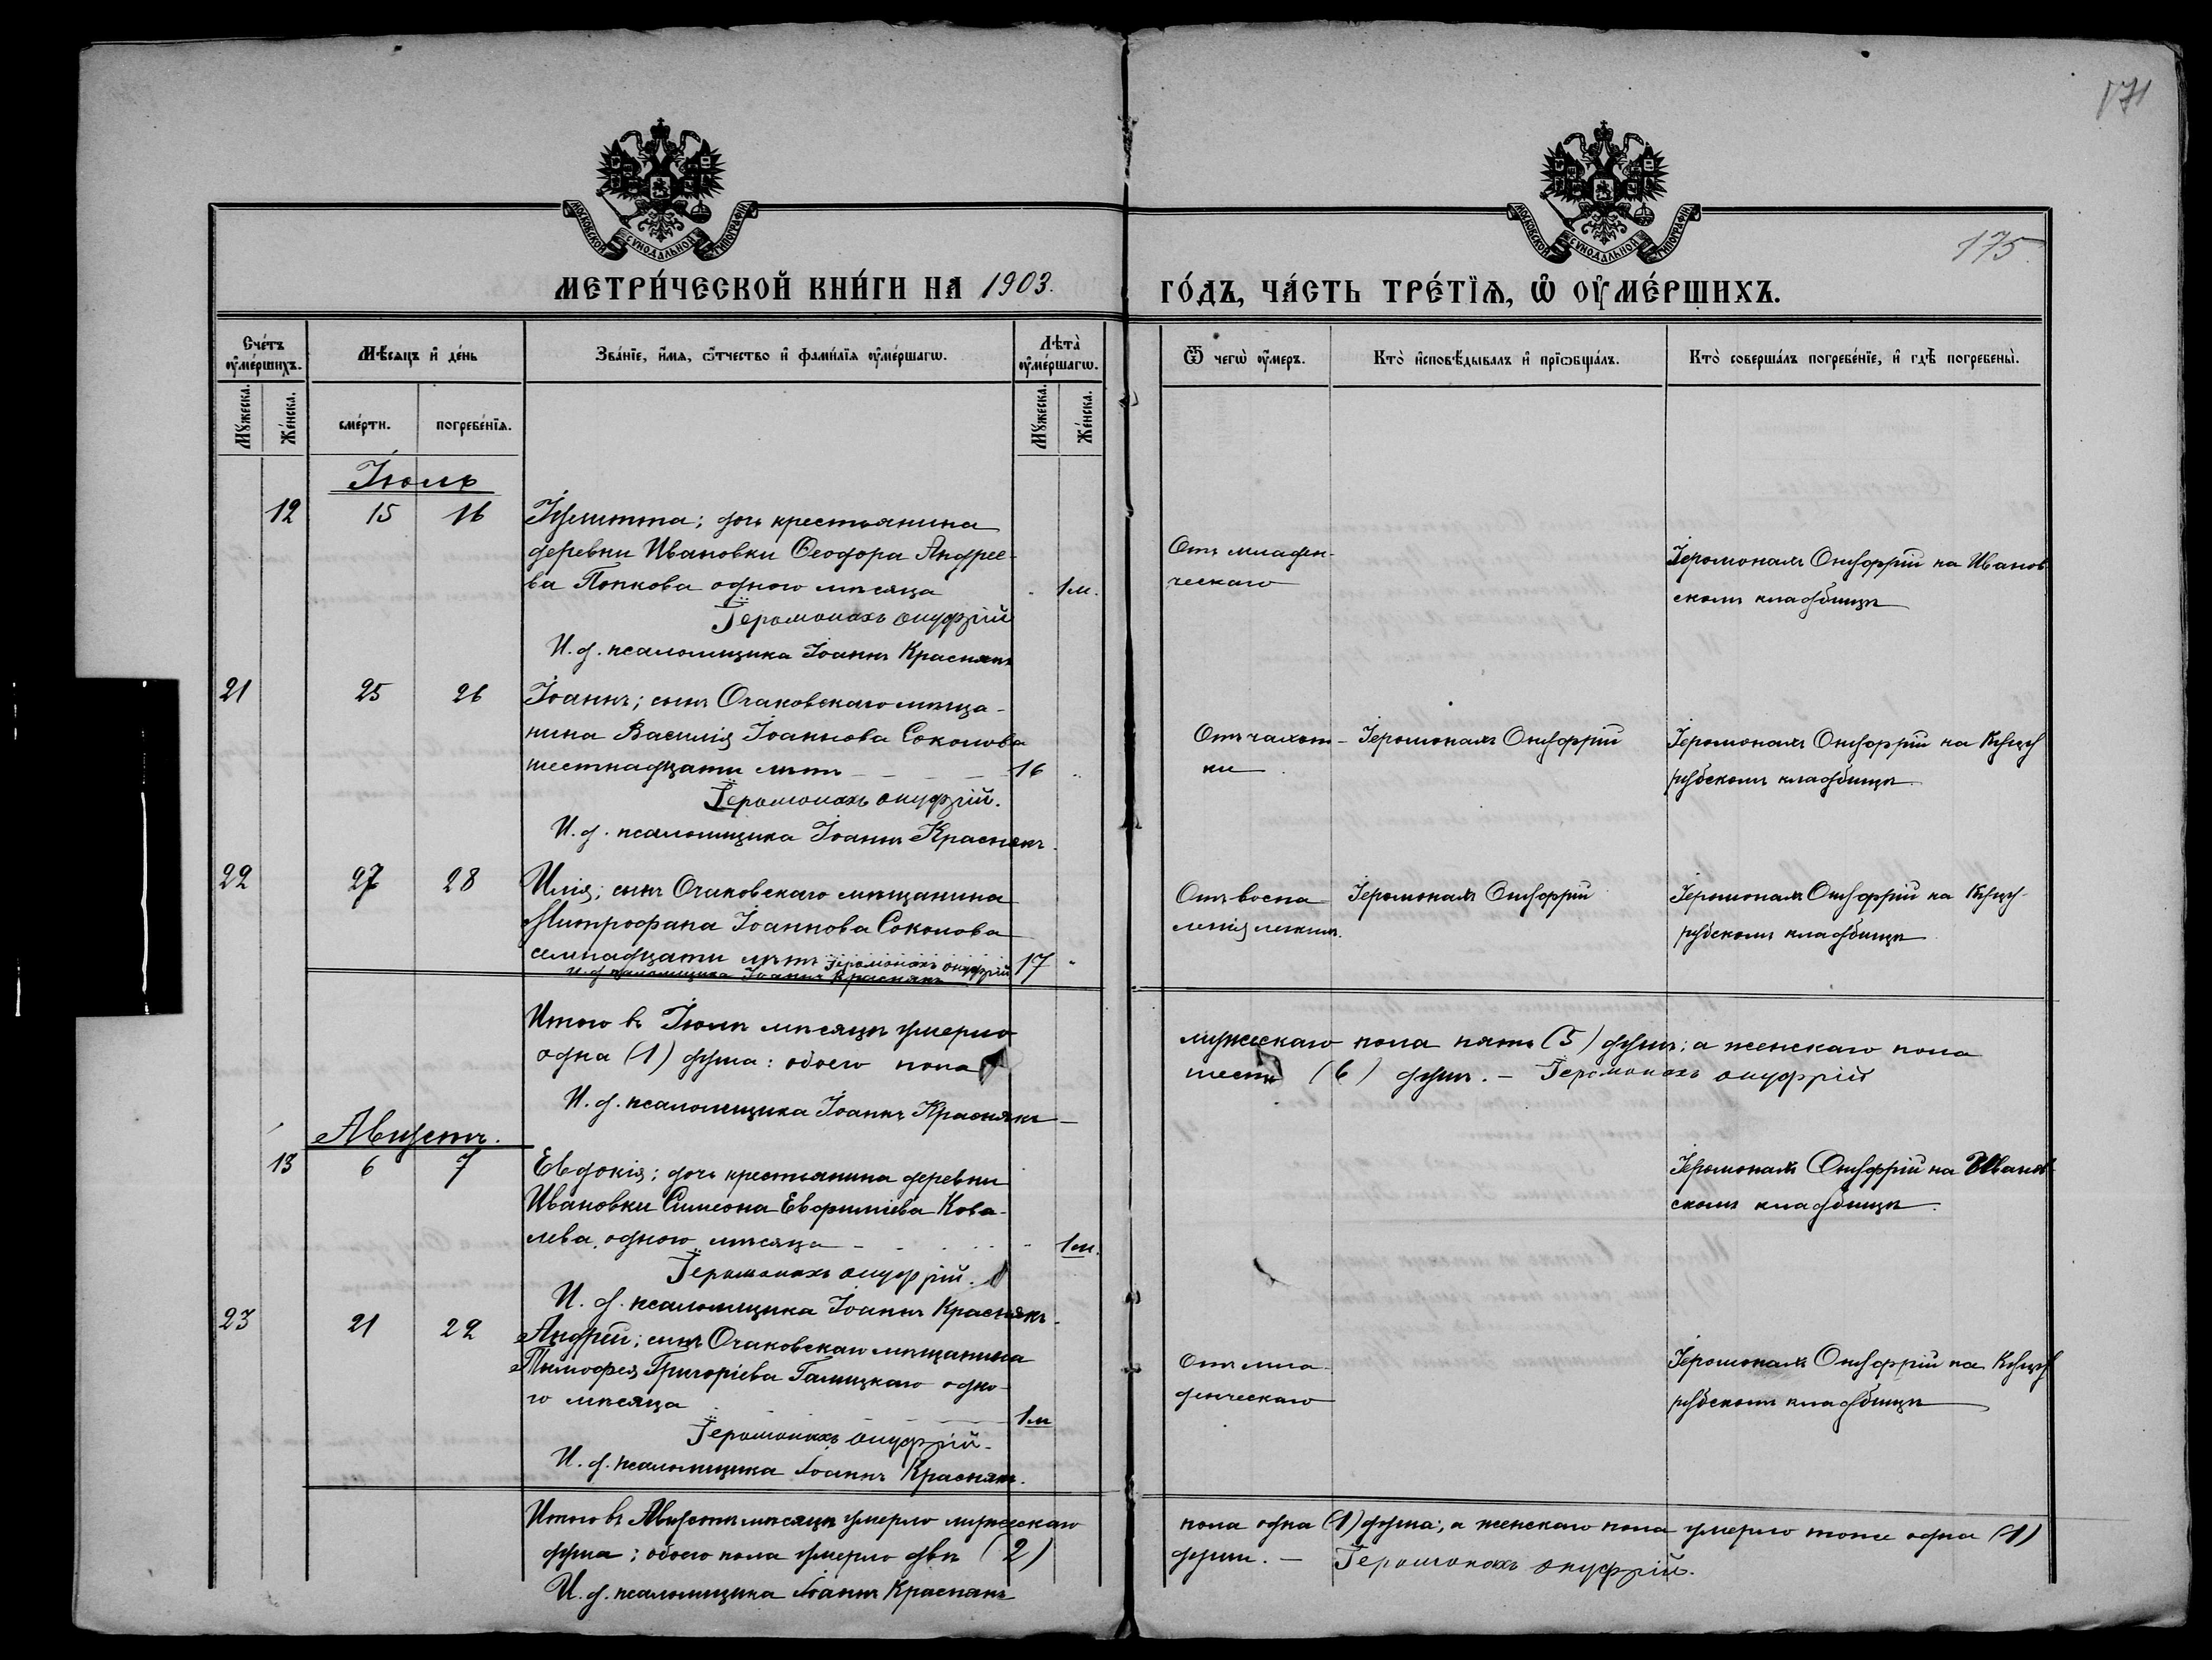 171
175
МОСКОВСКОЙ СУНОДАЛЬНОЙ ТИПОГРАФІИ
МОСКОВСКОЙ СУНОДАЛЬНОЙ ТИПОГРАФІИ
МЕТРИ́ЧЕСКОЙ КНИ́ГИ НА 1903.
ГО́ДЪ, ЧА́СТЬ ТРЕ́ТІѦ, Ѡ ОУМЕ́РШИХЪ.
Сче́тъ оумершихъ.
Мѣсяцъ и де́нь
Зва́ніе, имя, ѿтчество и фами́лія оуме́ршагѡ.
Лѣта̀ оуме́ршагѡ.
Ѿ чегѡ̀ оумеръ.
Кто̀ исповѣдывалъ и пріѡбща́лъ.
Кто̀ соверша́лъ погребе́ніе, и гдѣ погребены̀.
Му́жеска.
Же́нска.
сме́рти.
погребе́нія.
Му́жеска.
Же́нска.
Іюль
12 15 16 Іулитта; дочь крестьянина
деревни Ивановки Ѳеодора Андрее-
ва Попкова одного мѣсяца 1 м.
Іеромонахъ Онуфрій
И. д. псаломщика Іоаннъ Краснякъ
Отъ младен-
ческаго
Іеромонахъ Онуфрій на Иванов
скомъ кладбищѣ
21 25 26 Іоаннъ; сынъ Очаковскаго мѣща-
нина Василія Іоаннова Соколова
шестнадцати лѣтъ 16
Іеромонахъ Онуфрій.
И. д. псаломщика Іоаннъ Краснякъ.
Отъ чахот-
ки
Іеромонахъ Онуфрій
Іеромонахъ Онуфрій на Куцу
рубскомъ кладбищѣ.
22 27 28 Илія; сынъ Очаковскаго мѣщанина
Митрофана Іоаннова Соколова
семнадцати лѣтъ Іеромонахъ Онуфрій 17
И. д. псаломщика Іоаннъ Краснякъ
Отъ воспа
ленія легкихъ.
Іеромонахъ Онуфрій
Іеромонахъ Онуфрій на Куцу-
рубскомъ кладбищѣ
Итого въ Іюлѣ мѣсяцѣ умерло
одна (1) душа: обоего пола
И. д. псаломщика Іоаннъ Краснякъ
мужескаго пола пять (5) душъ; а женскаго пола
шесть (6) душъ. — Іеромонахъ Онуфрій
Августъ.
13 6 7 Евдокія; дочь крестьянина деревни
Ивановки Симеона Евфиміева Кова-
лева, одного мѣсяца 1 м.
Іеромонахъ Онуфрій.
И. д. псаломщика Іоаннъ Краснякъ.
Іеромонахъ Онуфрій на Иванов-
скомъ кладбищѣ.
23 21 22 Андрій; сынъ Очаковскаго мѣщанина
Тимофея Григоріева Галицкаго одно-
го мѣсяца 1 м
Іеромонахъ Онуфрій.
И. д. псаломщика Іоаннъ Краснякъ.
Отъ мла-
денческаго
Іеромонахъ Онуфрій на Куцу
рубскомъ кладбищѣ
Итого въ Августѣ мѣсяцѣ умерло мужескаго
душа; обоего пола умерло двѣ (2)
И. д. псаломщика Іоаннъ Краснякъ
пола одна (1) душа; а женскаго пола умерло тоже одна (1)
души. — Іеромонахъ Онуфрій.